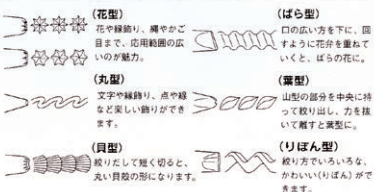 (花型)
花や縁飾り、縄やかご
目まで、応用範囲の広
いのが魅力。
(丸型)
文字や縁飾り、点や線
など楽しい飾りができ
ます。
(貝型)
絞りだして短く切ると、
丸い貝殻の形になります。
(ばら型)
口の広い方を下に、回
すように花弁を重ねて
いくと、ばらの花に。
(葉型)
山型の部分を中央に持
って絞り出し、力を抜
いて離すと葉型に。
(りぼん型)
絞り方でいろいろな、
かわいい(りぼん)がで
きます。